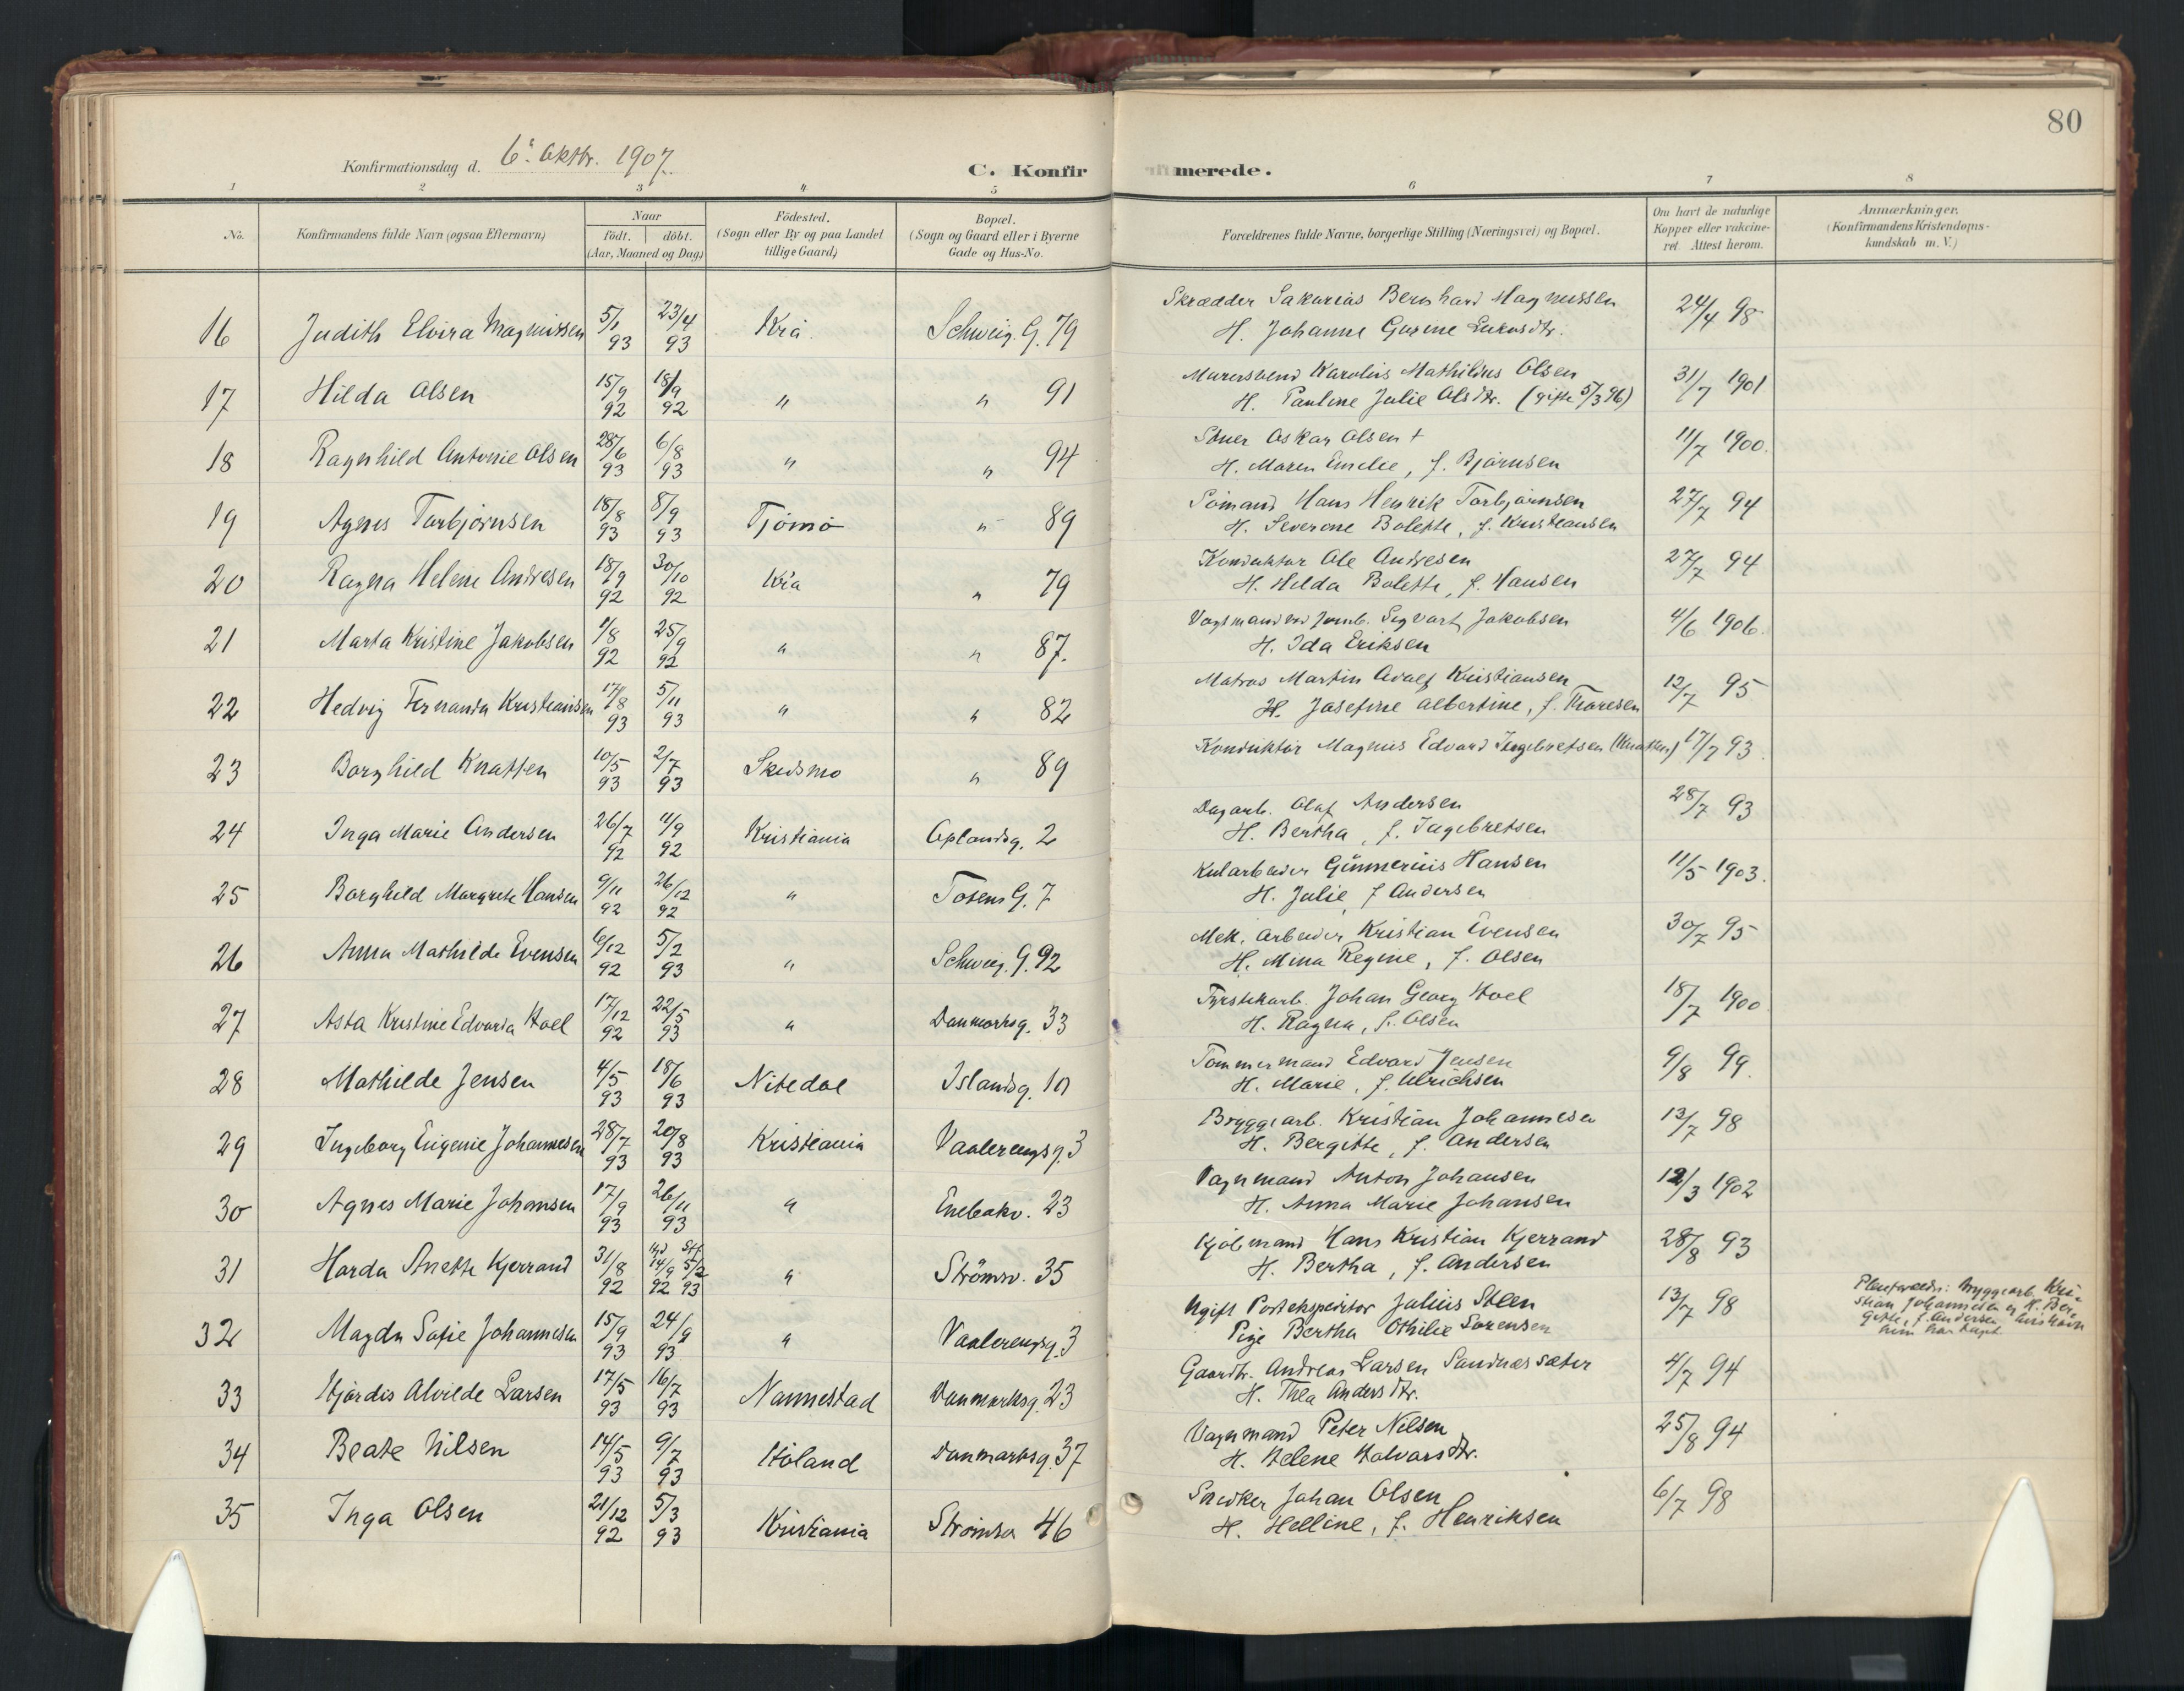 80
Konfirmationsdag d. 6' Oktbr. 1907.
C. Konfirmerede.
1 2 3 4 5 6 7 8
No.
Konfirmandens fulde Navn (ogsaa Efternavn)
Naar
födt. döbt.
(Aar, Maaned og Dag)
Födested.
(Sogn eller By og paa Landet
tillige Gaard)
Bopæl.
(Sogn og Gaard eller i Byerne
Gade og Hus-No.
Forældrenes fulde Navne, borgerlige Stilling (Næringsvei) og Bopæl.
Om havt de naturlige
Kopper eller vakcine-
ret Attest herom.
Anmærkninger.
(Konfirmandens Kristendoms-
kundskab m. V.)
16 Judith Elvira Magnussen 5/1 93 23/4 93 Kra. Schweig. G. 79 Skrædder Sakarias Bernhard Magnussen 24/4 98
H. Johanne Gurine Lukasdtr.
17 Hilda Olsen 15/9 92 18/9 92 " " 91 Murersvend Karolius Mathildus Olsen 31/7 1901
H. Pauline Julie Olsdtr. (gifte 5/3 96)
18 Ragnhild Antonie Olsen 28/6 93 6/8 93 " " 94 Stuer Oskar Olsen + 11/7 1900.
H. Maren Emelie, f. Bjørnsen
19 Agnes Torbjørnsen 18/8 93 8/9 93 Tjømø " 89 Sømand Hans Henrik Torbjørnsen 27/7 94
H. Severine Bolette, f. Kristiansen
20 Ragna Helene Andresen 18/9 92 30/10 92 Kra " 79 Konduktør Ole Andresen 27/7 94
H. Hilda Bolette, f. Hansen
21 Marta Kristine Jakobsen 1/8 92 25/9 92 " " 87. Vognmand ved Jernb. Sigvart Jakobsen 4/6 1906.
H. Ida Eriksen
22 Hedvig Fernanda Kristiansen 17/8 93 5/11 93 " " 82 Matros Martin Adolf Kristiansen 12/7 95
H. Josefine Albertine, f. Thoresen
23 Borghild Knatten 10/5 93 2/7 93 Skedsmo " 89 Konduktør Magnus Edvard Ingebretsen (Knatten) 17/7 93.
24 Inga Marie Andersen 26/7 92 11/9 92 Kristiania Oplandsg. 2 Dagarb. Olaf Andersen 28/7 93
H. Bertha, f. Ingebretsen
25 Borghild Margrete Hansen 9/11 92 26/12 92 " Totens G. 7 Kularbeider Gunnerius Hansen 11/5 1903.
H. Julie, f Andersen
26 Anna Mathilde Evensen 6/12 92 5/2 93 " Schweig. G. 92 Mek. Arbeider Kristian Evensen 30/7 95
H. Mina Regine, f. Olsen
27 Asta Kristine Edvarda Hoel 17/12 92 22/5 93 " Danmarksg. 33 Fyrstikarb. Johan Georg Hoel 18/7 1900
H. Ragna, f. Olsen
28 Mathilde Jensen 4/5 93 18/6 93 Nitedal Islandsg. 10 Tømmermand Edvard Jensen 9/8 99.
H. Marie, f. Ulrichsen
29 Ingeborg Eugenie Johannesen 28/7 93 20/8 93 Kristiania Vaalerengsg. 3 Bryggearb. Kristian Johannesen 13/7 98
H. Bergitte, f. Andersen
30 Agnes Marie Johansen 17/9 93 26/11 93 " Enebakv. 23 Vognmand Anton Johansen 12/3 1902
H. Anna Marie Johansen
31 Harda Anette Kjerrand 31/8 92 14/9 92 Stf. 5/2 93 " Strømsv. 35 Kjøbmand Hans Kristian Kjerrand 28/8 93
H. Bertha, f. Andersen
32 Magda Sofie Johannesen 15/9 93 24/9 93 " Vaalerengsg. 3 Ugift Postekspeditør Julius Steen 13/7 98
Pige Bertha Othilie Sørensen
Pleieforældre: Bryggearb. Kri-
stian Johannesen og H. Ber-
gitte, f. Andersen
33 Hjørdis Alvilde Larsen 17/5 93 16/7 93 Nannestad Danmarksg. 23 Gaardbr. Andreas Larsen Sandnessæter 4/7 94
H. Thea Andersdtr.
34 Beate Nilsen 14/5 93 9/7 93 Høland Danmarksg. 37 Vognmand Peter Nilsen 25/8 94
H. Helene Halvorsdtr.
35 Inga Olsen 21/12 92 5/3 93 Kristiania Strømsv 46 Snedker Johan Olsen 6/7 98
H. Helline, f. Henriksen